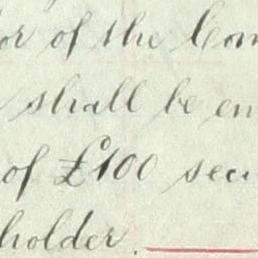 or of the Com
shall be en
of £100 secu
holder.